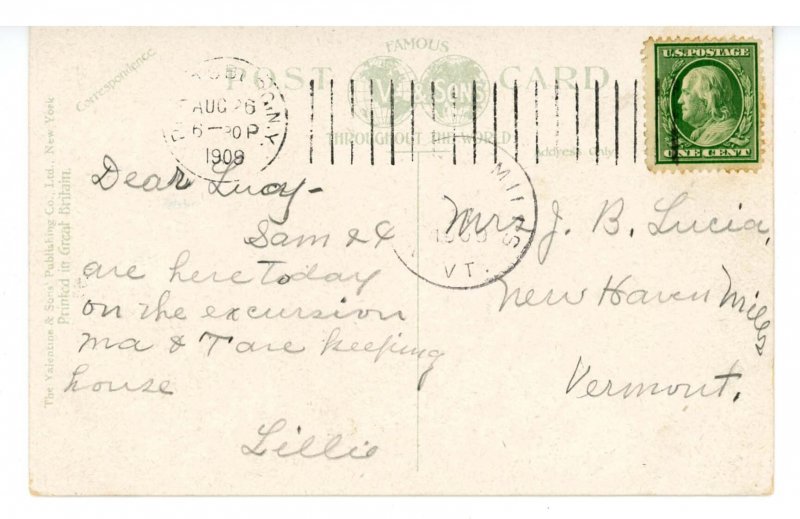 Correspondence.
FAMOUS
POST CARD
VALENTINE & SONS
THROUGHOUT THE WORLD
Address Only.
The Valentine & Sons' Publishing Co., Ltd., New York
Printed in Great Britain.
U.S. POSTAGE
ONE CENT
N.Y.
AUG 26
6-30 P
1909
MILLS
VT.
Dear Lucy -
Sam & I
are here today
on the excursion
ma & T are keeping
house
Lillie
Mrs J. B. Lucia,
New Haven Mills
Vermont.